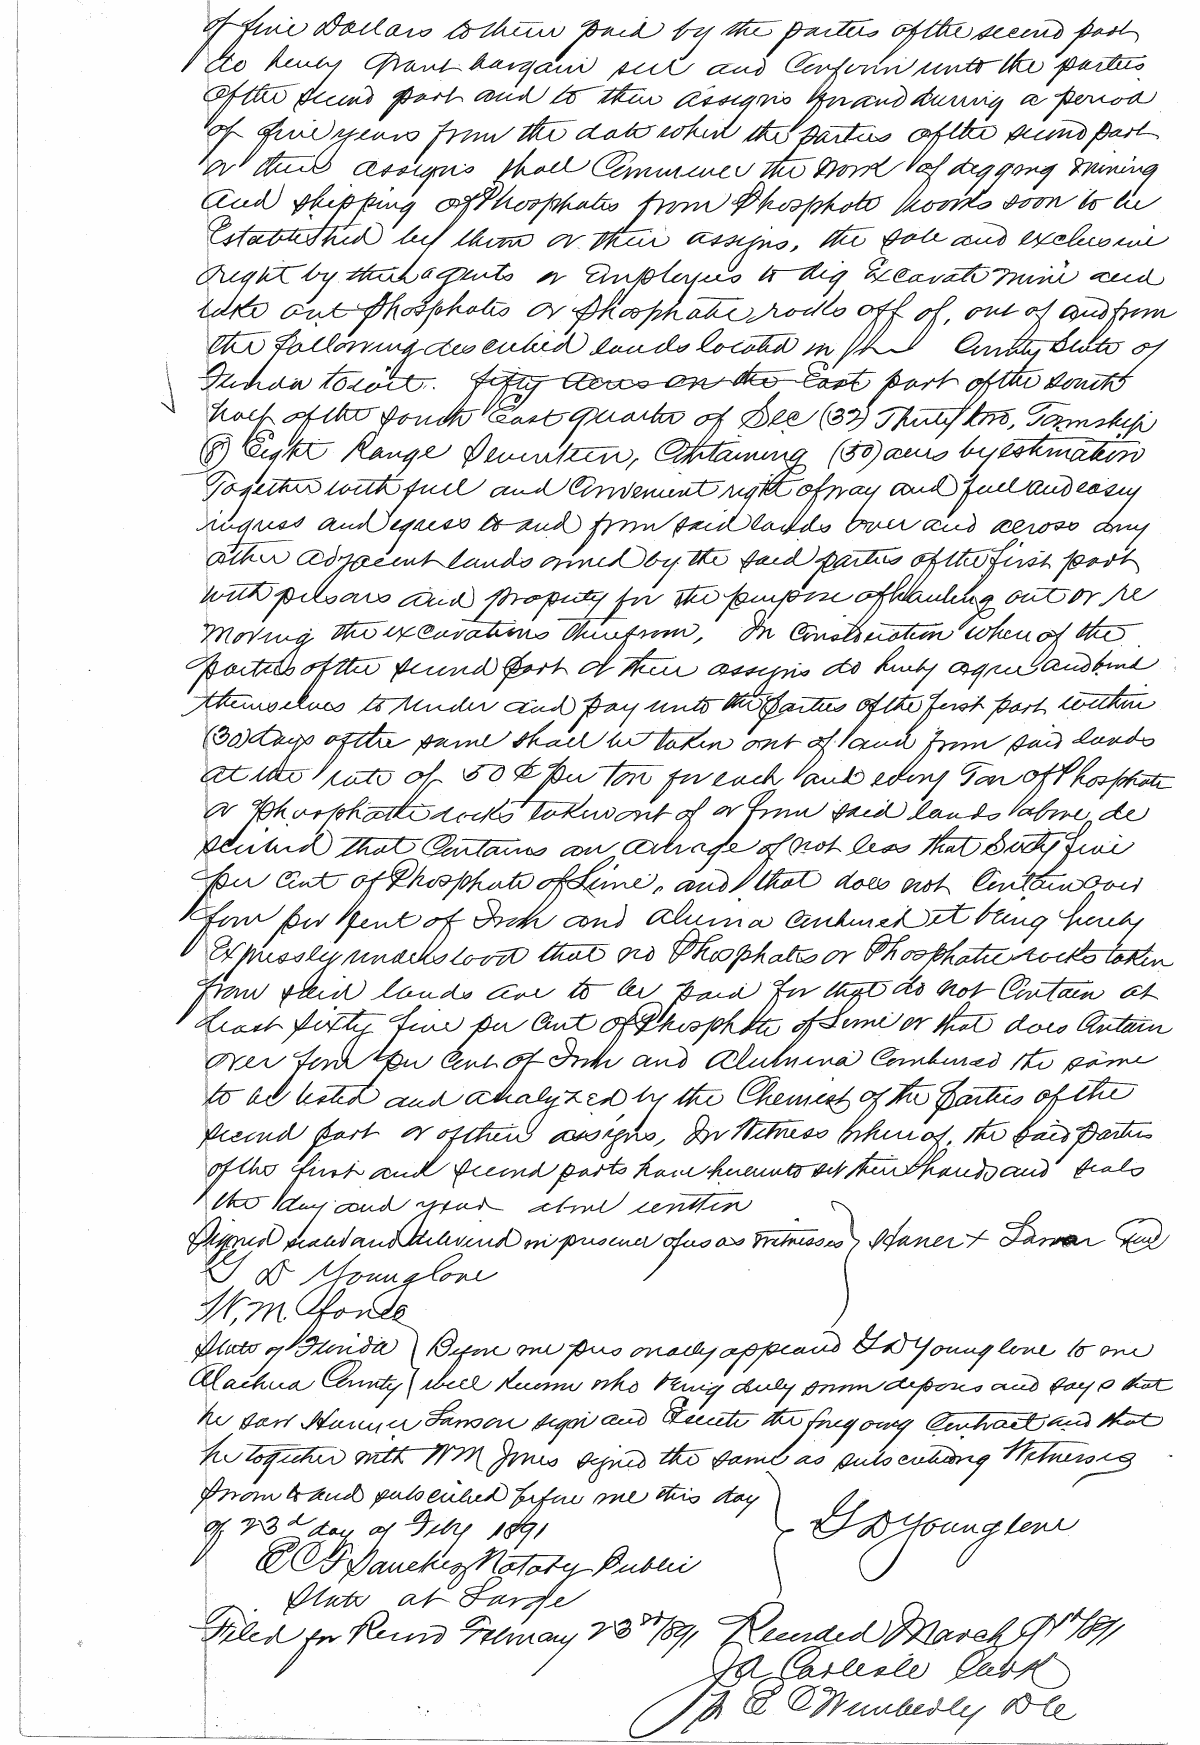 of five Dollars to them paid by the parties of the second part
do hereby grant bargain sell and Confirm unto the parties
of the second part and to their assigns for and during a period
of five years from the date when the parties of the second part
or their assigns shall Commence the work of digging mining
and shipping of Phosphates from Phosphate works soon to be
Established by them or their assigns, the sole and exclusive
right by their agents or Employees to dig Excavate mine and
take out Phosphates or Phosphatic rocks off of, out of and from
the following described lands located in County State of
Florida to wit. fifty acres on the East part of the South
half of the South East quarter of Sec (32) Thirty two, Township
(8) Eight Range Seventeen, Containing (50) acres by estimation
Together with full and Convenient right of way and full and easy
ingress and egress to and from said lands over and across any
other adjacent lands owned by the said parties of the first part
with persons and property for the purpose of hauling out or re
moving the excavations therefrom, In Consideration whereof the
parties of the second part or their assigns do hereby agree and bind
themselves to render and pay unto the parties of the first part within
(30) days of the same shall be taken out of and from said lands
at the rate of 50 ¢ per ton for each and every Ton of Phosphate
or Phosphatic rocks taken out of or from said lands above de
scribed that Contains an average of not less that Sixty five
per Cent of Phosphate of Lime, and that does not Contain over
four per Cent of Iron and Alumina Combined it being hereby
Expressly understood that no Phosphates or Phosphatic rocks taken
from said lands are to be paid for that do not Contain at
least sixty five per Cent of Phosphate of Lime or that does Contain
over four per Cent of Iron and Alumina Combined the same
to be tested and analyzed by the Chemist of the parties of the
second part or of their assigns, In Witness whereof, the said parties
of the first and second parts have hereunto set their hands and seals
the day and year above written
Signed sealed and delivered in presence of us as witnesses Haner + Lawson Seal
G D Younglove
W. M. Jones
State of Florida Before me personally appeared G D Younglove to me
Alachua County well known who being duly sworn deposes and says that
he saw Hanner Lawson sign and Execute the foregoing Contract and that
he together with WM Jones signed the same as subscribing Witnesses
Sworn to and subscribed before me this day
of 23d day of Feby 1891 G D Younglove
E C F Sanchez Notary Public
State at Large
Filed for Record February 23rd 1891 Recorded March 9th 1891
J A Carlisle Clerk
Pr E C Wimberly D C